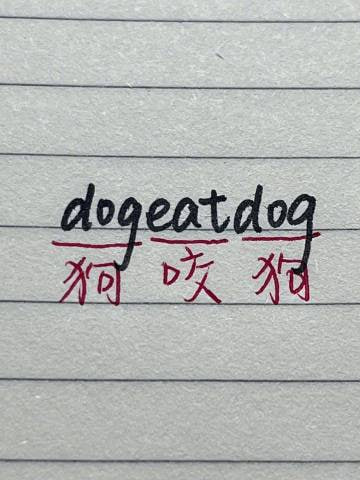 dogeatdog
狗 咬 狗